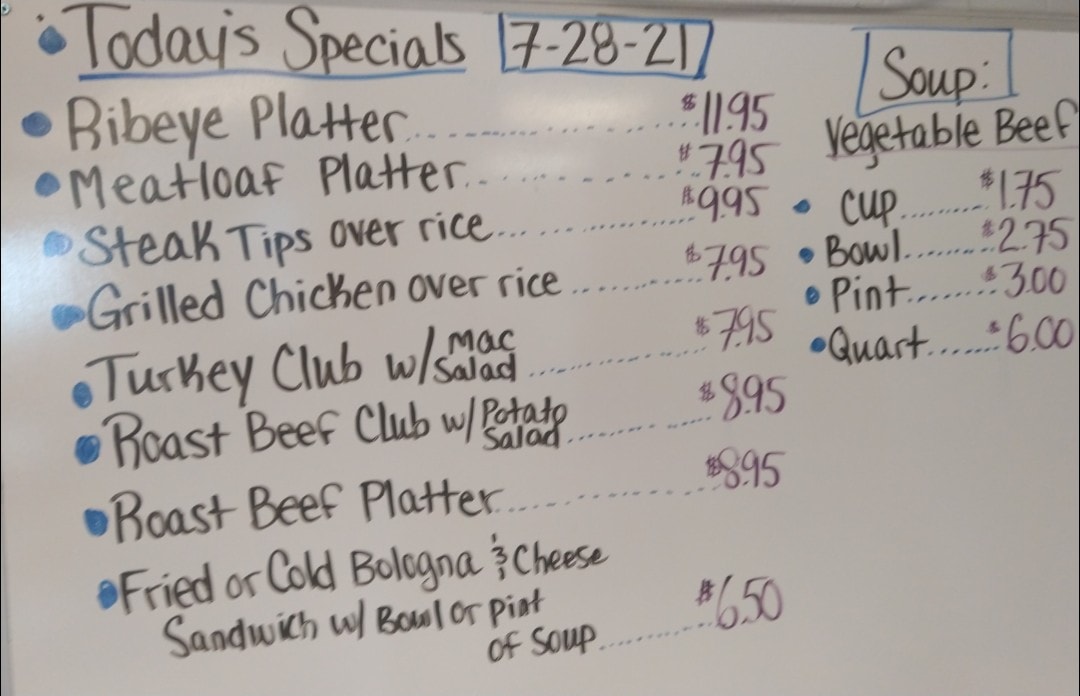 Today's Specials 7-28-21
• Ribeye Platter........................ $11.95
• Meatloaf Platter..................... $7.95
• Steak Tips over rice................. $9.95
• Grilled Chicken over rice........... $7.95
• Turkey Club w/ Mac Salad............ $7.95
• Roast Beef Club w/ Potato Salad..... $8.95
• Roast Beef Platter................... $8.95
• Fried or Cold Bologna & Cheese
Sandwich w/ Bowl or Pint
of Soup............ $6.50
Soup:
Vegetable Beef
• Cup......... $1.75
• Bowl......... $2.75
• Pint......... $3.00
• Quart........ $6.00